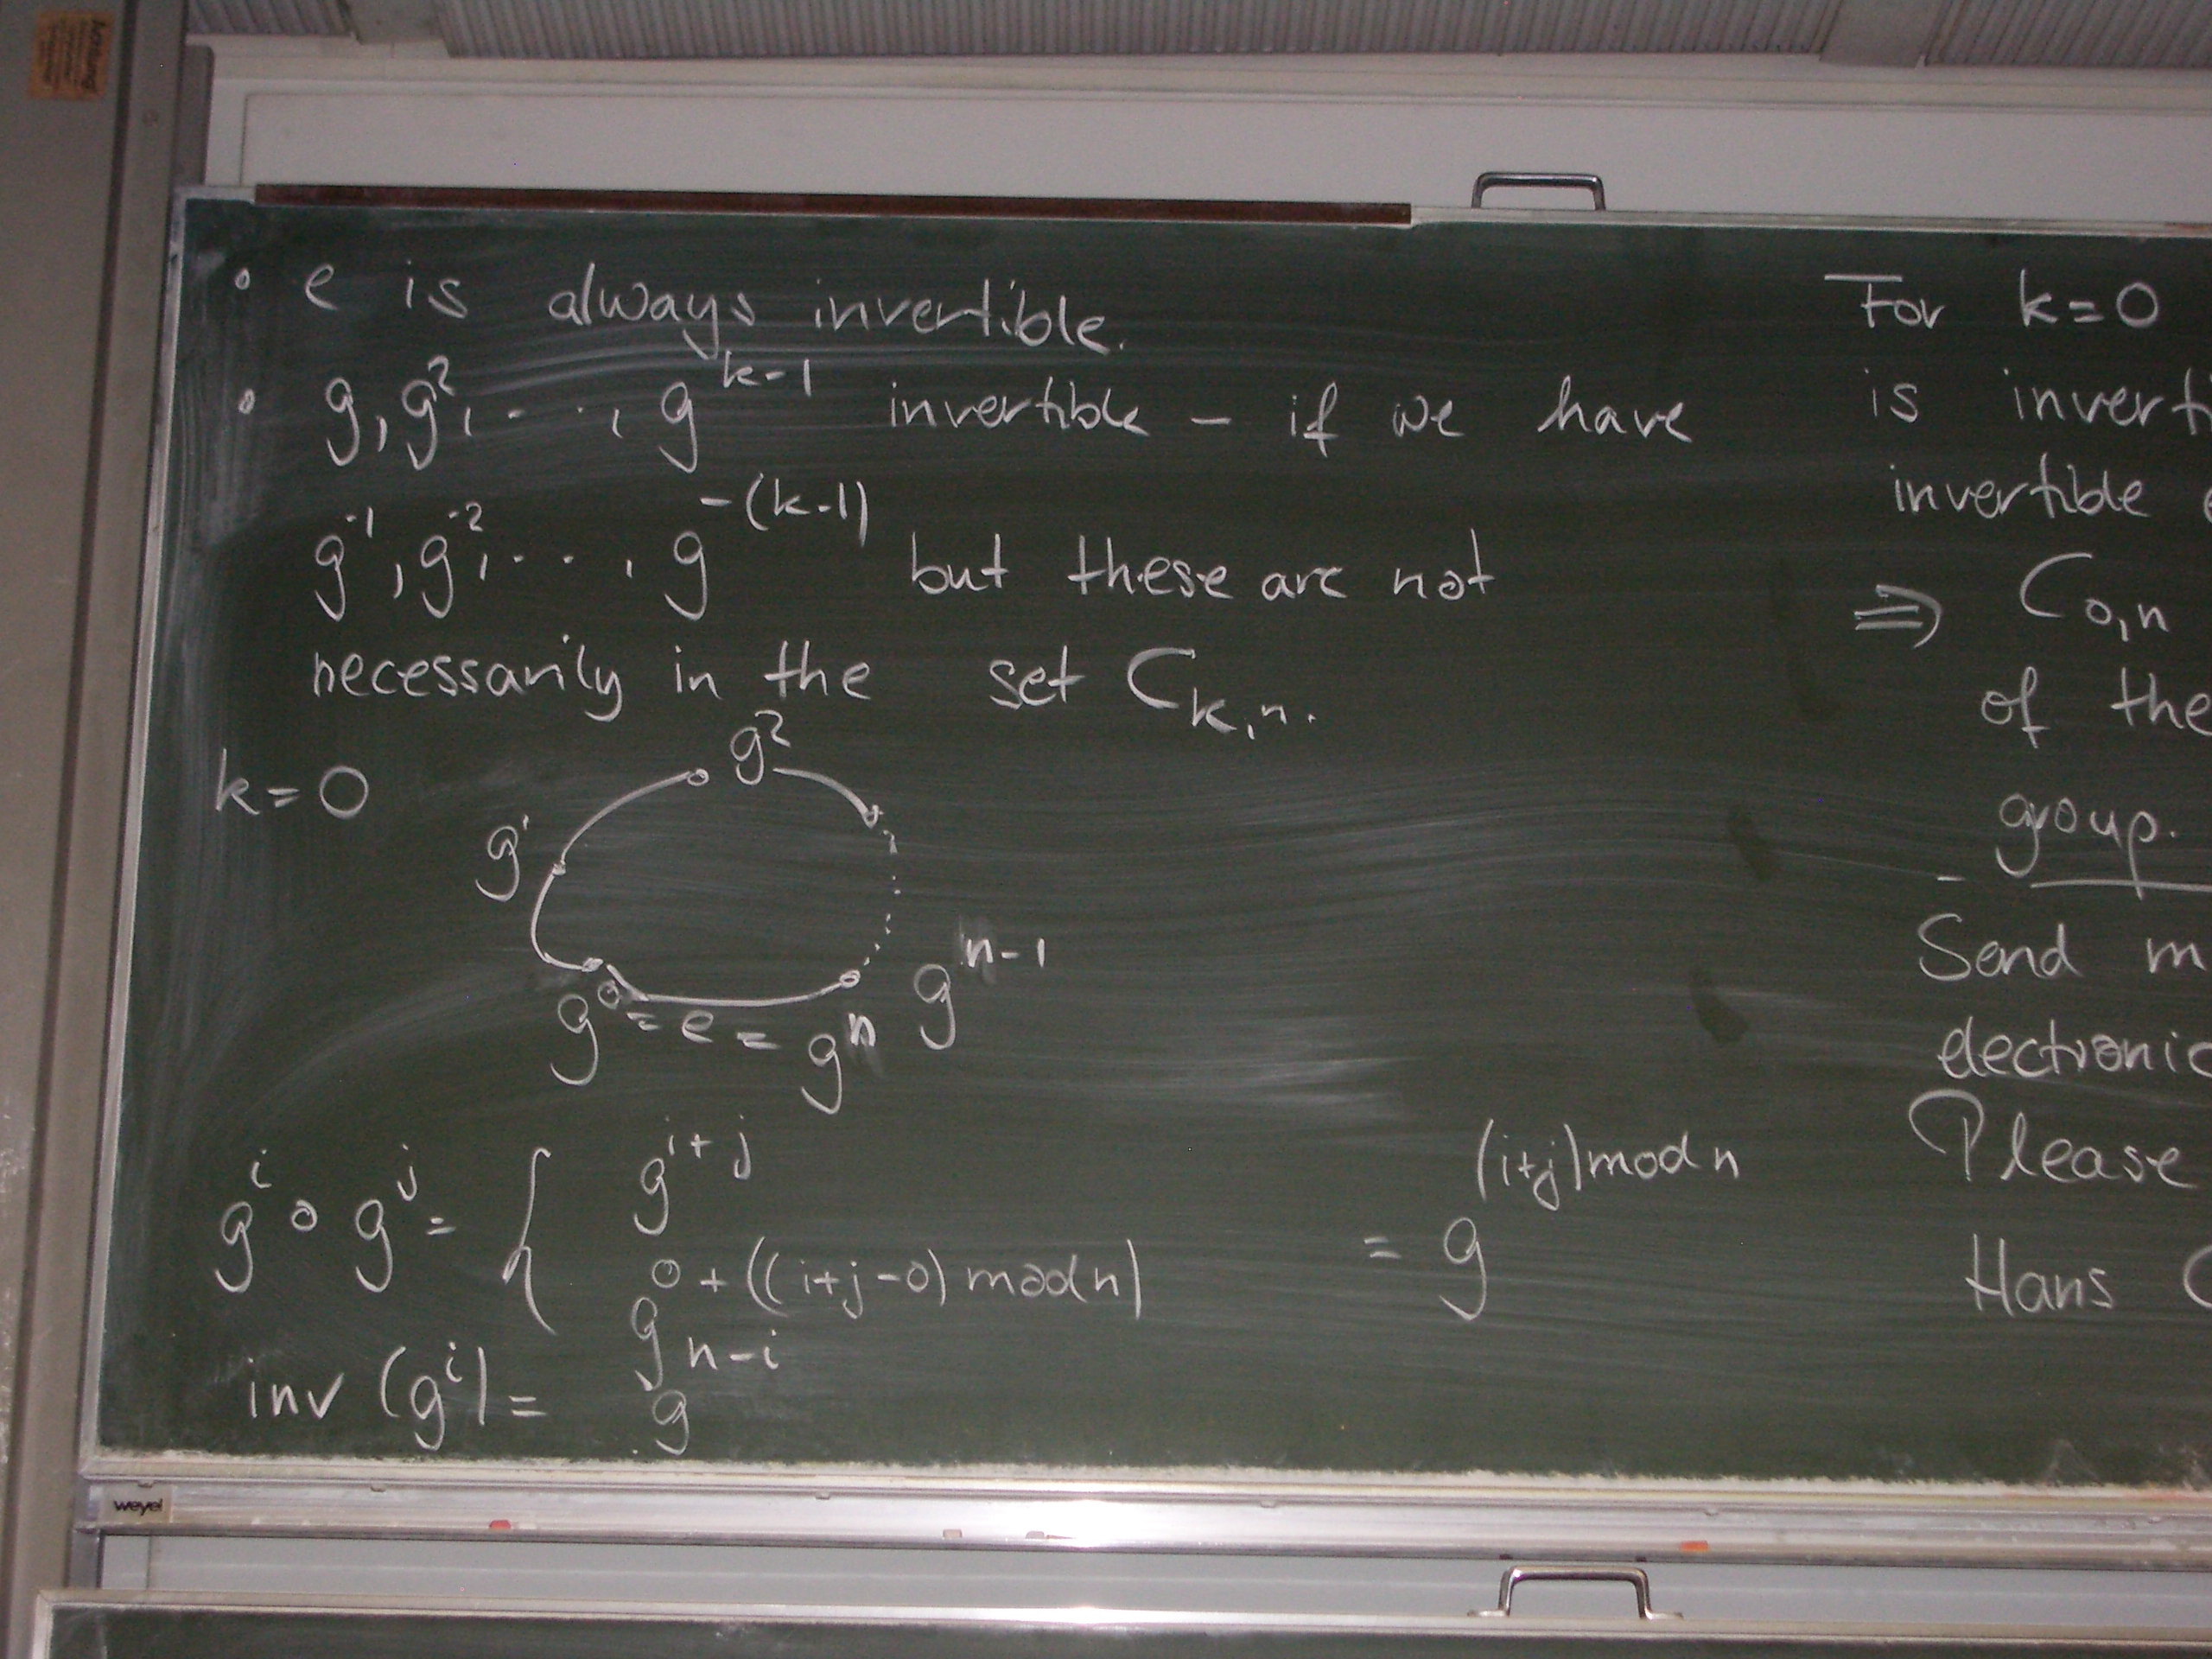 • e is always invertible.
• g, g², ..., g^{k-1} invertible – if we have
g^{-1}, g^{-2}, ..., g^{-(k-1)} but these are not
necessarily in the set C_{k,n}.
k=0
g²
g¹
g^{n-1}
g⁰ = e = g^n
g^i ∘ g^j = { g^{i+j}
g^{0+((i+j-0) mod n)} = g^{(i+j) mod n}
inv (g^i) = g^{n-i}
For k=0
is inverti
invertible
⇒ C_{0,n}
of the
group.
Send m
electronic
Please
Hans
weyel